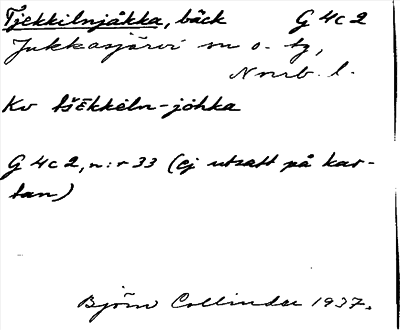 Tjekkilnjåkka, bäck G 4c2
Jukkasjärvi sn o. tg,
Norrb. l.
Kv tšēkkeln-johka
G 4c2, n:r 33 (ej utsatt på kar-
tan)
Björn Collinder 1937.